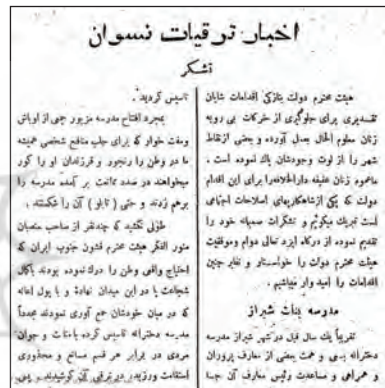 اخبار ترقیات نسوان
تشکر
هیئت محترم دولت بتازکی اقدامات شایان
تقدیری برای جلوگیری از حرکات بی رویه
زنان معلوم الحال بعمل آورده و بعضی ازنقاط
شهر را از لوث وجودشان پاك نموده است .
ماعموم زنان عفیفه دارالخلافه را برای این اقدام
دولت که یکی ازشاهکاریهای اصلاحات اجتماعی
است تبریك میگوئیم و تشکرات صمیمانه خود را
تقدیم نموده از درکاه ایزد تعالی دوام وموفقیت
هیئت محترم دولت را خواستار و نظایر چنین
اقدامات را امید وار میباشیم .
مدرسه بنات شیراز
تقریباً یك سال قبل درشهر شیراز مدرسه
دخترانه بسعی و همت بعضی از معارف پروران
و همراهی و مساعدت رئیس معارف آن
تاسیس کردید .
بمجرد افتتاح مدرسه مزبور جمعی از اوباش
ومفت خوار که برای جلب منافع شخصی همیشه
ما در وطن را رنجور و فرزندان او را کور
میخواهند در صدد ممانعت بر آمده مدرسه را
برهم زدند و حتی ( تابلو ) آن را شکستند .
طولی نکشید که چندنفر از صاحب منصبان
منور الفکر هیئت محترم قشون جنوب ایران که
احتیاج واقعی وطن را درك نموده بودند باکمال
شجاعت پا در این میدان نهاده و با پول اعانه
که در میان خودشان جمع آوری نمودند مجدداً
مدرسه دخترانه تاسیس کرده با متانت و جوان
مردی در برابر هر قسم مصائب و محذوری
استقامت ورزیده در ترقی آن کوشیدند